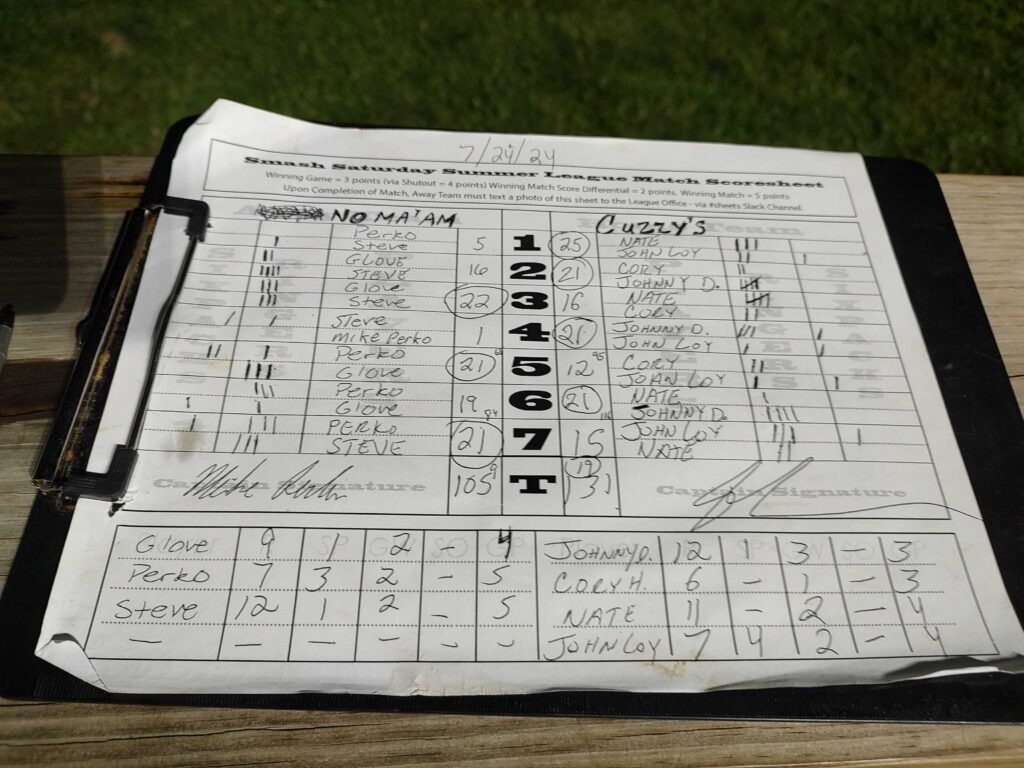 7/24/24
Smash Saturday Summer League Match Scoresheet
Winning Game = 3 points (via Shutout = 4 points) Winning Match Score Differential = 2 points. Winning Match = 5 points
Upon Completion of Match, Away Team must text a photo of this sheet to the League Office - via #sheets Slack Channel.
NO MA'AM Cuzzy's
Perko NATE
Steve 5 1 25 JOHN LOY
GLOVE CORY
STEVE 16 2 21 JOHNNY D.
Glove NATE
Steve 22 3 16 CORY
Steve JOHNNY D.
Mike Perko 1 4 21 JOHN LOY
Perko CORY
Glove 21 5 12 JOHN LOY
Perko NATE
Glove 19 84 6 21 JOHNNY D.
PERKO JOHN LOY
STEVE 21 7 15 NATE
Captain Signature 105 9 T 19 131 Captain Signature
Glove 9 1 2 - 4 JOHNNY D. 12 1 3 - 3
Perko 7 3 2 - 5 CORY H. 6 - 1 - 3
Steve 12 1 2 - 5 NATE 11 - 2 - 4
- - - - - - JOHN LOY 7 4 2 - 4